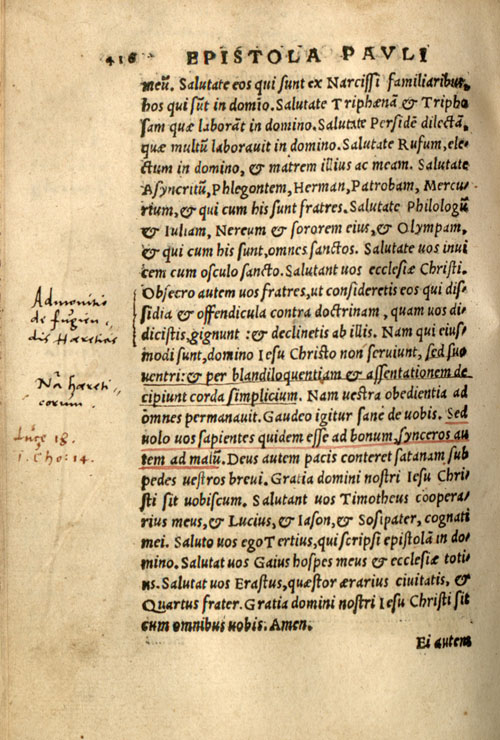 416 EPISTOLA PAVLI
meũ. Salutate eos qui sunt ex Narcissi familiaribus,
hos qui sũt in domio. Salutate Triphænã & Tripho
sam quæ laborãt in domino. Salutate Persidẽ dilectã,
quæ multũ laborauit in domino. Salutate Rufum, ele
ctum in domino, & matrem illius ac meam. Salutate
Asyncritũ, Phlegontem, Herman, Patrobam, Mercu
rium, & qui cum his sunt fratres. Salutate Philologũ
& Iuliam, Nereum & sororem eius, & Olympam,
& qui cum his sunt, omnes sanctos. Salutate uos inui
cem cum osculo sancto. Salutant uos ecclesiæ Christi.
Obsecro autem uos fratres, ut consideretis eos qui dis
sidia & offendicula contra doctrinam, quam uos di
dicistis, gignunt : & declinetis ab illis. Nam qui eius
modi sunt, domino Iesu Christo non seruiunt, sed suo
uentri: & per blandiloquentiam & assentationem de
cipiunt corda simplicium. Nam uestra obedientia ad
omnes permanauit. Gaudeo igitur sane de uobis. Sed
uolo uos sapientes quidem esse ad bonum, synceros au
tem ad malũ. Deus autem pacis conteret satanam sub
pedes uestros breui. Gratia domini nostri Iesu Chri
sti sit uobiscum. Salutant uos Timotheus coopera
rius meus, & Lucius, & Iason, & Sosipater, cognati
mei. Saluto uos ego Tertius, qui scripsi epistolã in do
mino. Salutat uos Gaius hospes meus & ecclesiæ toti
us. Salutat uos Erastus, quæstor ærarius ciuitatis, &
Quartus frater. Gratia domini nostri Iesu Christi sit
cum omnibus uobis. Amen.
Ei autem
Admonitio
de fugien
dis Hæreticis
Nã hæreti
corum.
Lucę 18.
1. Cho: 14.